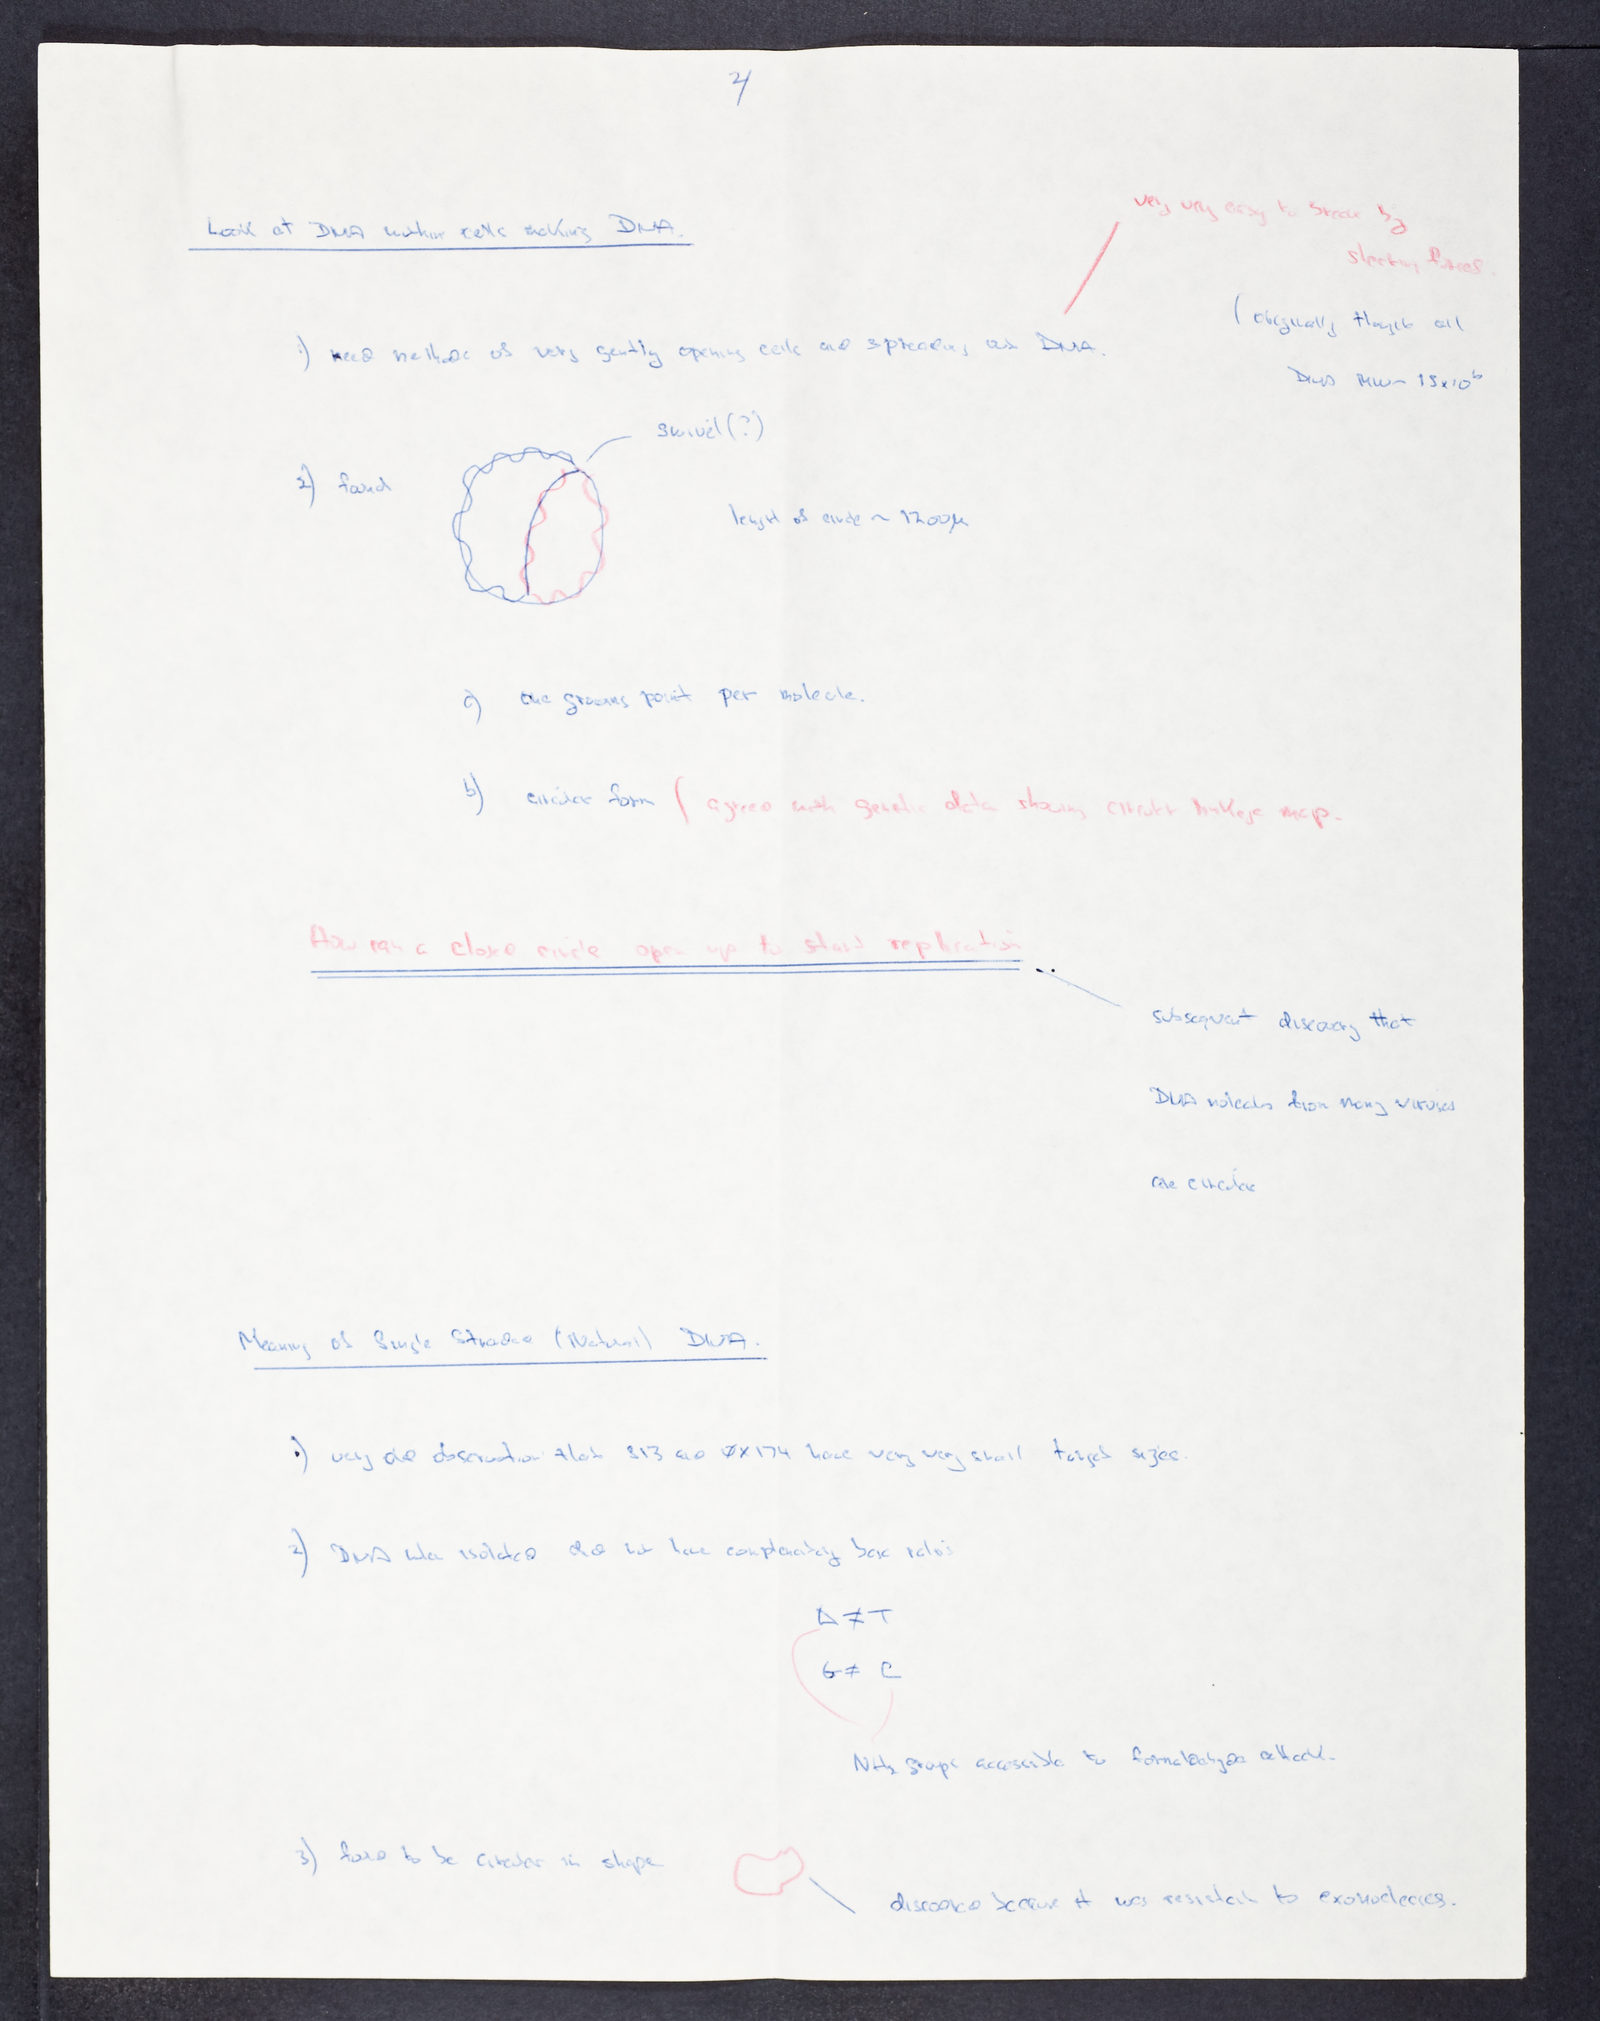 4
Look at DNA within cells making DNA.
very very easy to break by
shearing forces.
(originally thought all
DNA MW ~ 15x10⁶
1) need method of very gently opening cells and spreading out DNA.
swivel (?)
2) found
length of circle ~ 1200μ
a) one growing point per molecule.
b) circular form (agreed with genetic data showing circular linkage map.
How can a closed circle open up to start replication
subsequent discovery that
DNA molecules from many viruses
are circular
Meaning of Single Stranded (Natural) DNA.
1) very old observation that S13 and ØX174 have very very small target sizes.
2) DNA when isolated did not have complementary base ratios
A ≠ T
G ≠ C
NH₂ groups accessible to formaldehyde attack.
3) found to be circular in shape
discovered because it was resistant to exonucleases.